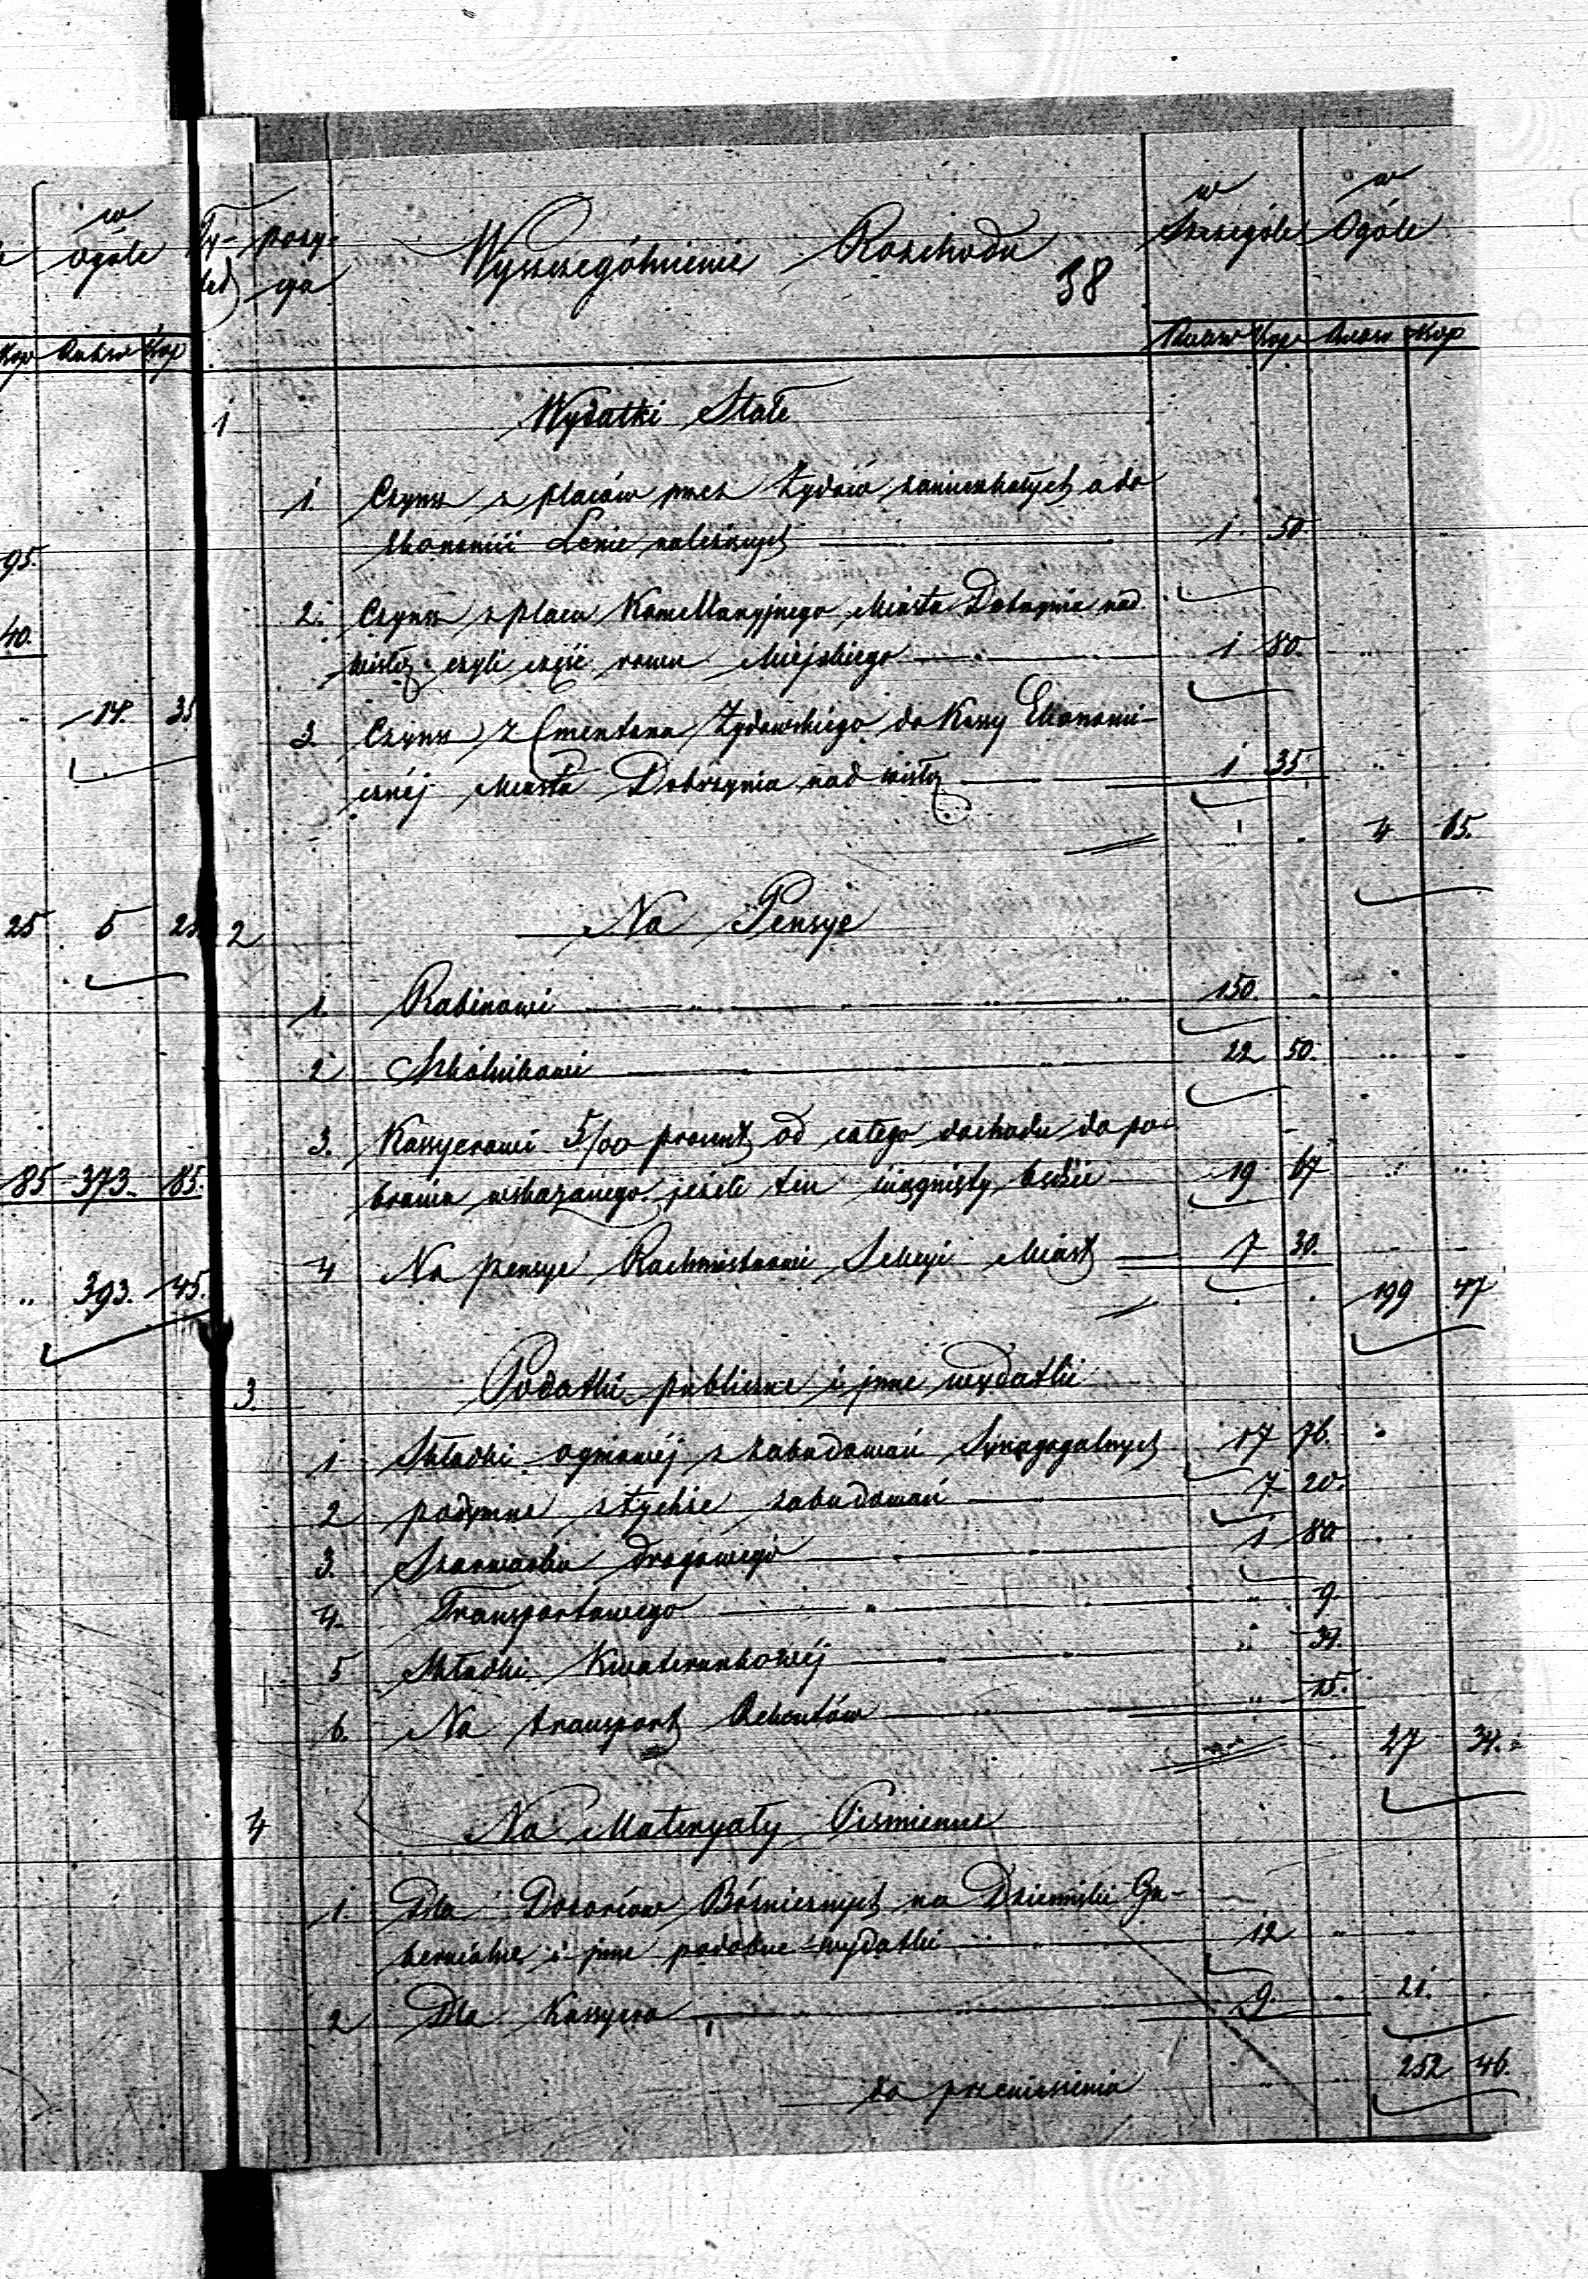 w Ogóle
Kop Rubsr Kop
95.
40.
14. 35
25 5 25
85 373. 85.
" 393. 45.
Ty- pozy- Wyszczególnienie Roschodu w Szczególe w Ogóle
tuł cja 38
Rubsr Kop Rubsr Kop
1 Wydatki Stałe
1. Czynsz z placów przez Żydów zamieszkałych a do
Ekonomii Lenie należnych 1 50.
2. Czynsz z placu Kamellaryjnego Miasta Dobrzynia nad
wisłą czyli część rowu Miejskiego 1 80.
3. Czynsz z Cmentarza Żydowskiego do Kassy Ekonomi-
cznéj Miasta Dobrzynia nad wisłą 1 35
4 65.
2 Na Pensye
1. Rabinowi 150.
2 Szkólnikowi 22 50.
3. Kassyerowi 5/00 procent od całego dochodu do po-
brania wskazanego jeżeli ten ściągnięty będzie 19 67
4 Na pensye Rachmistrzowi Sekcyi Miast 7 30.
199 47
3. Podatki publiczne i jnne wydatki
1 Składki ogniowéj z zabudowań Synagogalnych 17 76.
2 podymne z tychże zabudowań 7 20.
3. Szarwarku drogowego 1 80
4. Transportowego " 9.
5 Składki Kwaterunkowéj " 34.
6. Na transport Rekrutów " 15.
27 34.
4 Na Materyały Piśmienne
1. Dla Dozorców Bóżnicznych na Dzienniki Gu-
bernialne i jnne podobne wydatki 12 "
2 Dla Kassyera 9. " 21.
do przeniesienia 252 46.